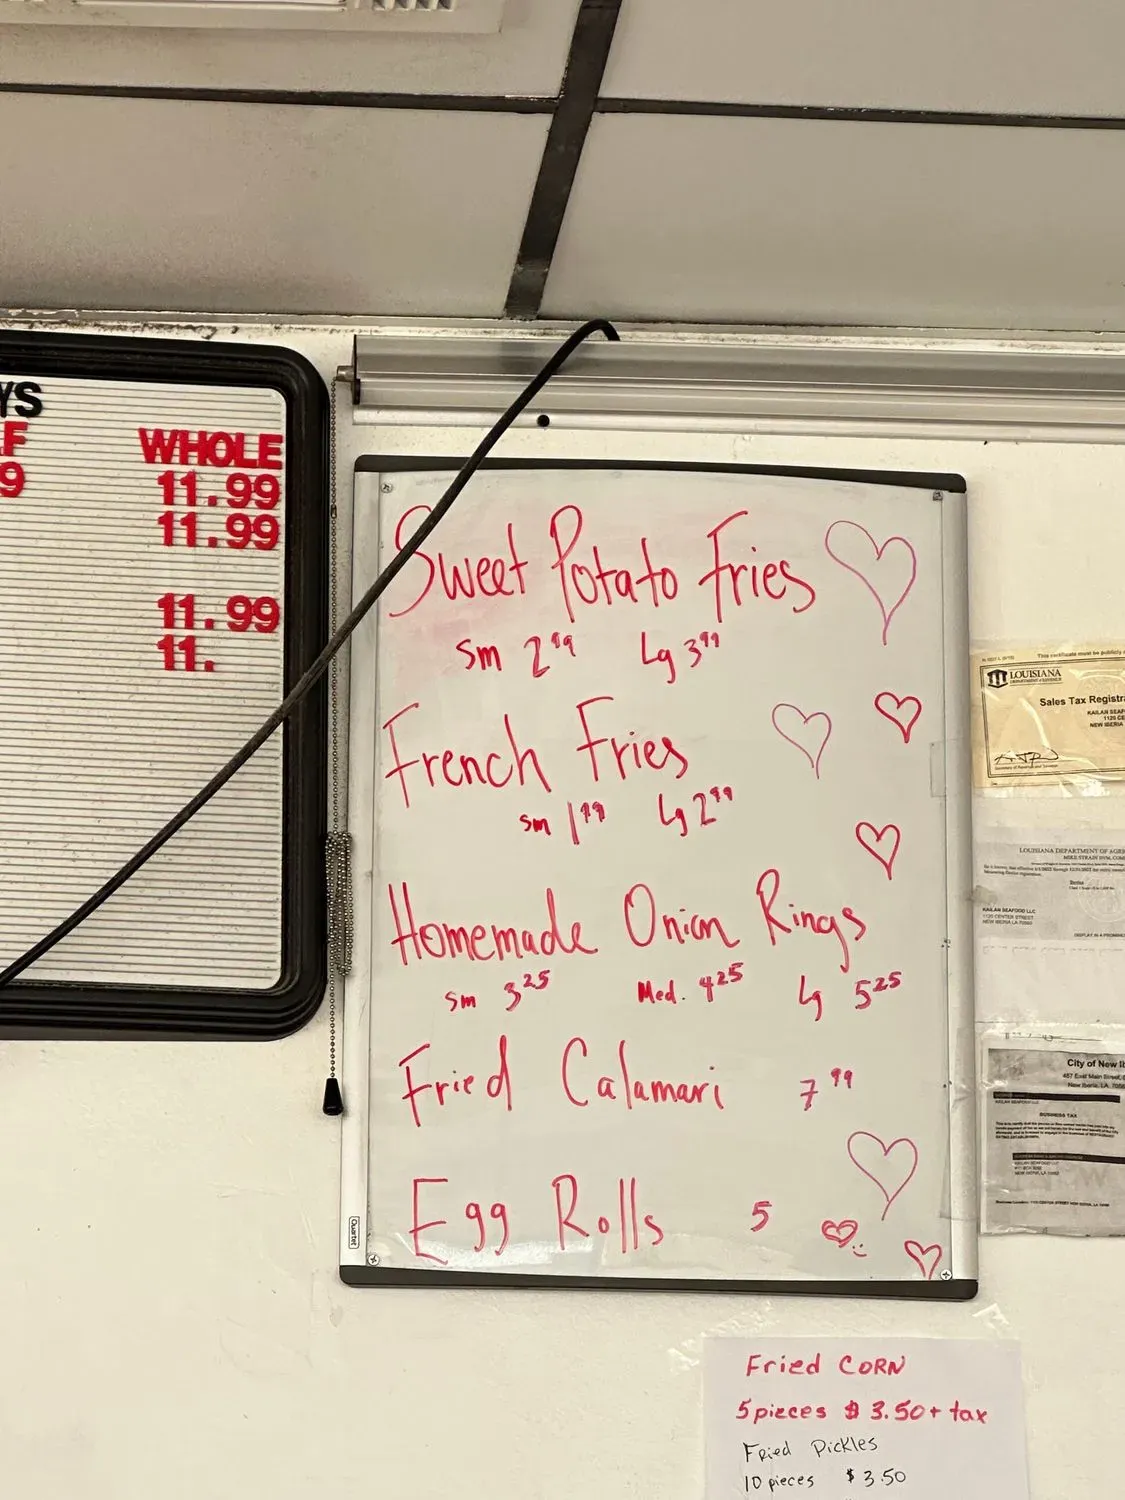 YS
F WHOLE
9 11.99
11.99
11.99
11.
Sweet Potato Fries
sm 2.99 Lg 3.99
French Fries
sm 1.99 Lg 2.99
Homemade Onion Rings
sm 3.25 Med. 4.25 Lg 5.25
Fried Calamari 7.99
Egg Rolls 5
Quartet
This certificate must be publicly
LOUISIANA
Sales Tax Registra
KAILAN SEAF
1120 CE
NEW IBERIA
LOUISIANA DEPARTMENT OF AGRI
MIKE STRAIN DVM, COM
KAILAN SEAFOOD LLC
1120 CENTER STREET
NEW IBERIA LA 70560
DISPLAY IN A PROMINE
City of New Ib
457 East Main Street,
New Iberia, LA 7056
BUSINESS TAX
Fried CORN
5 pieces $ 3.50 + tax
Fried Pickles
10 pieces $ 3.50